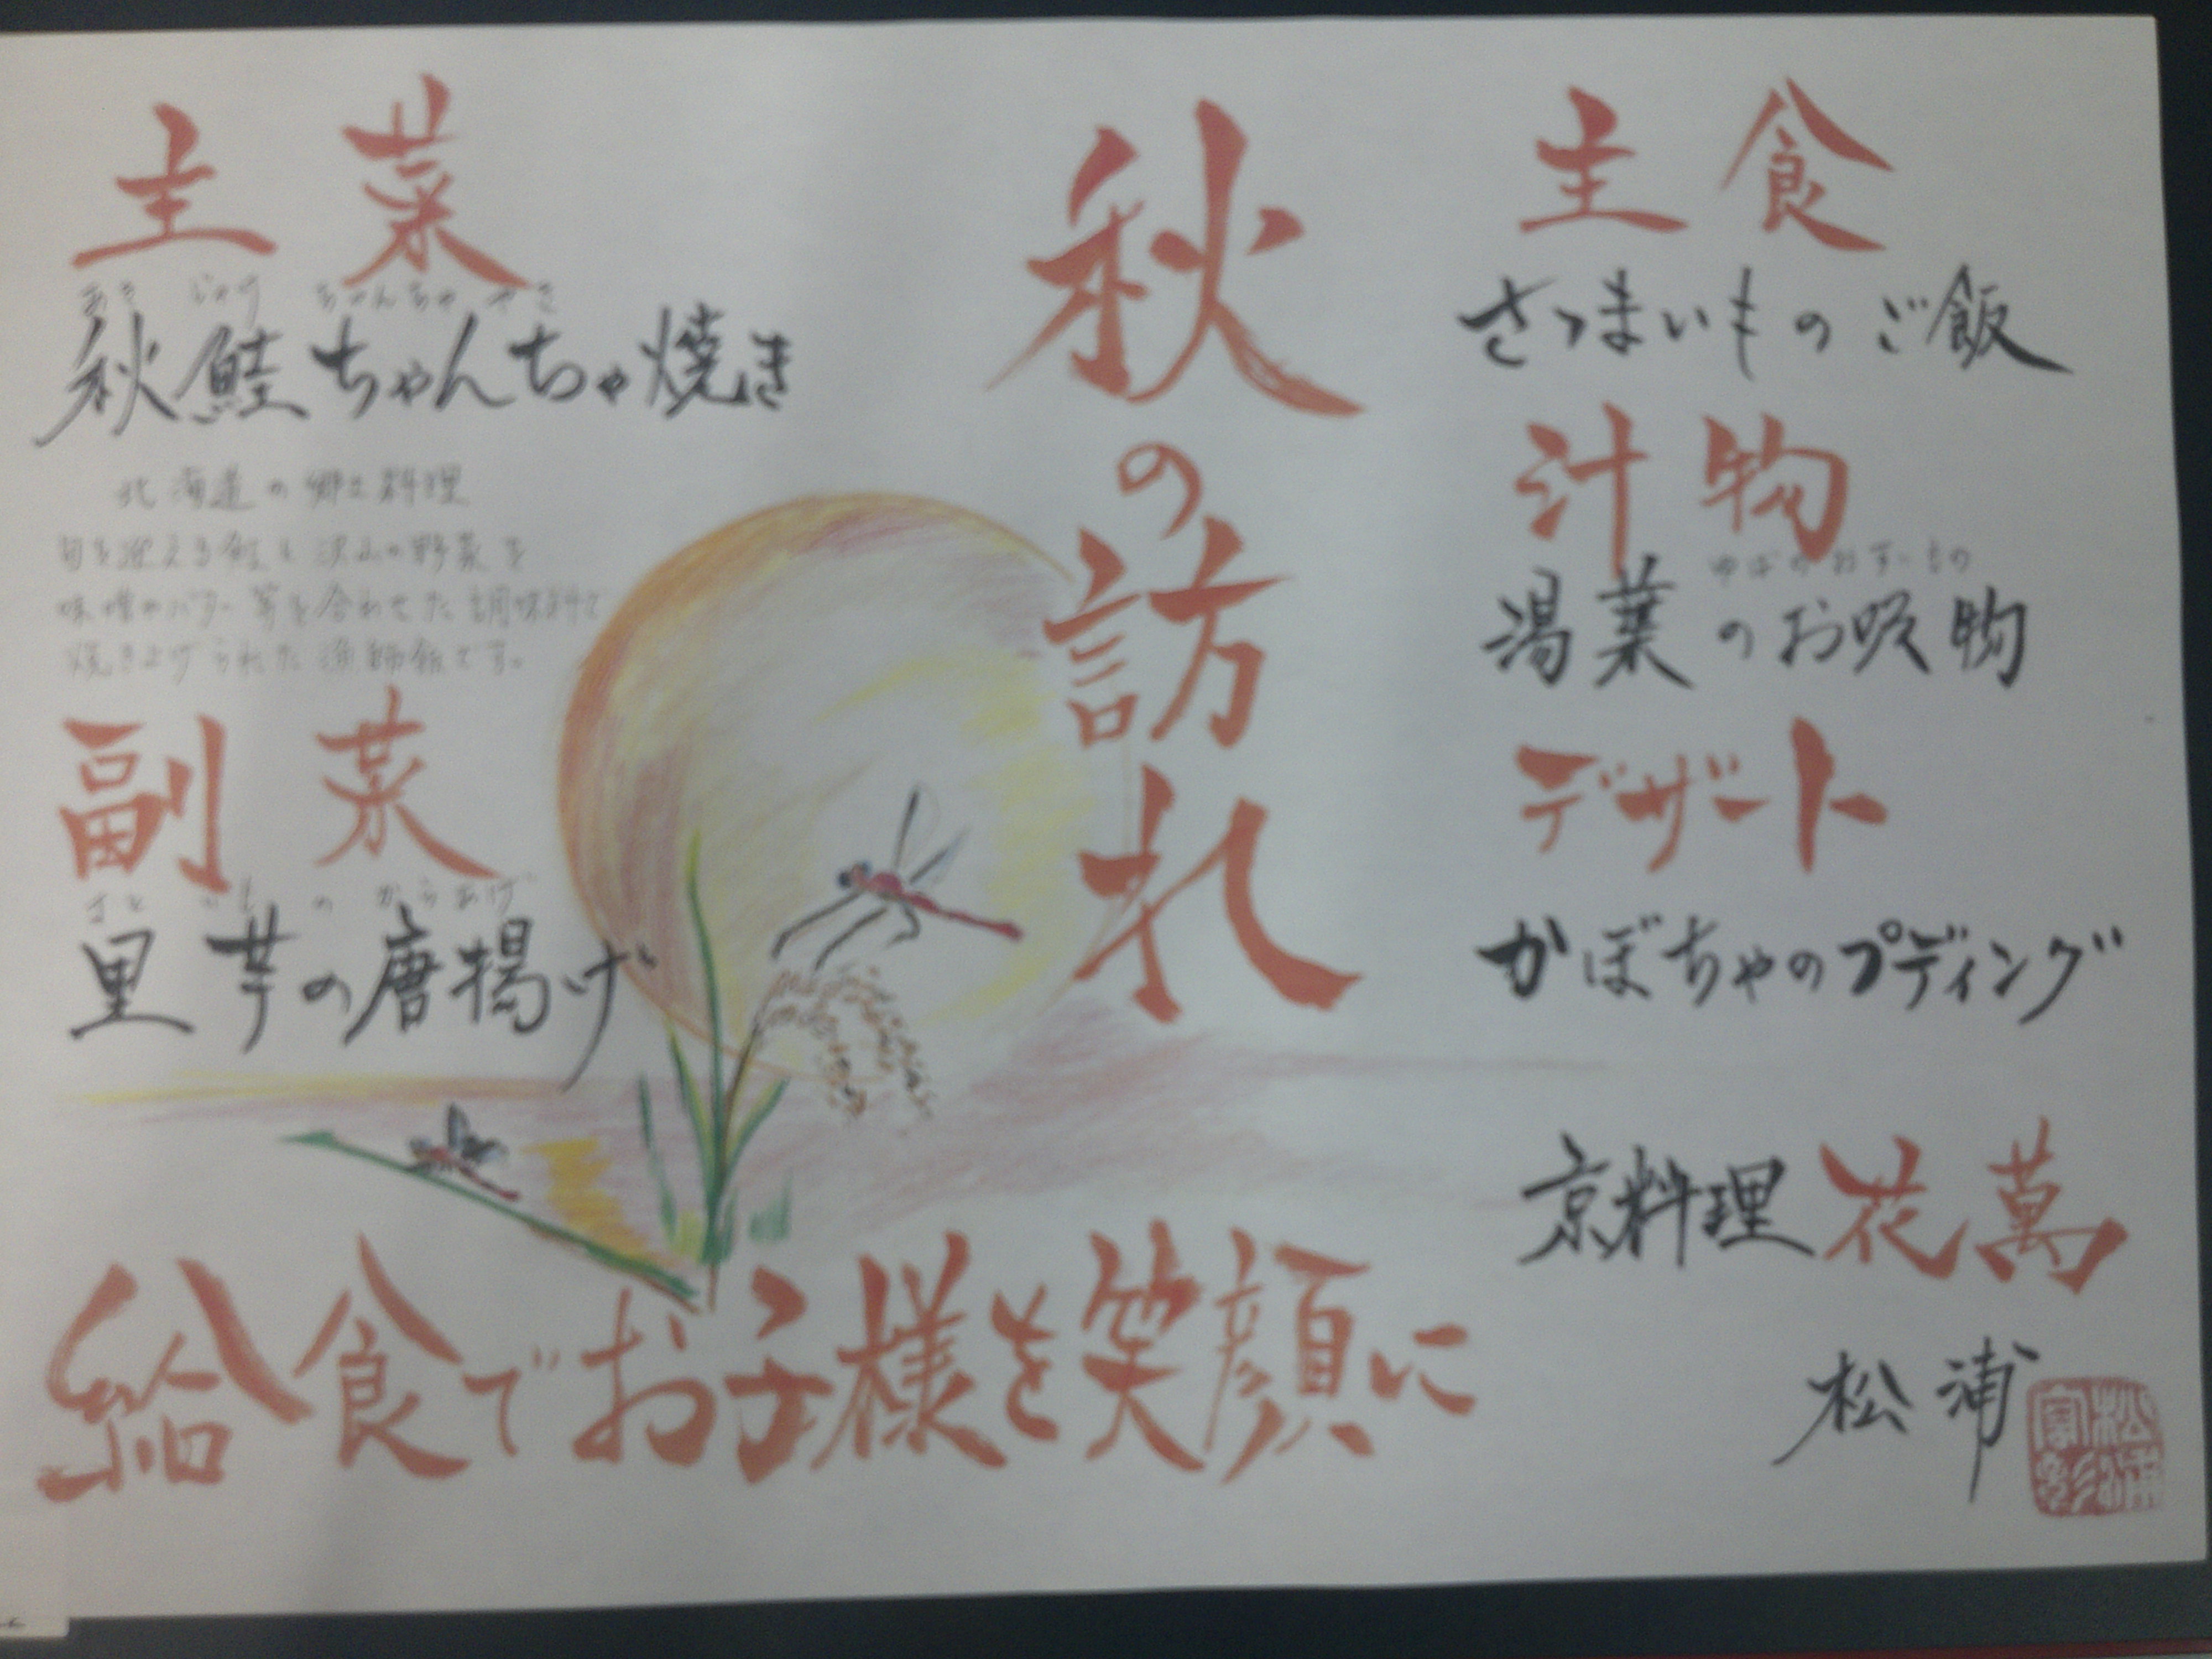 秋の訪れ
主食
さつまいものご飯
汁物
ゆばのおすいもの
湯葉のお吸物
デザート
かぼちゃのプディング
主菜
あき じゃけ ちゃんちゃ やき
秋鮭ちゃんちゃ焼き
北海道の郷土料理
旬を迎える鮭と沢山の野菜を
味噌やバター等を合わせた調味料で
焼き上げられた漁師飯です。
副菜
さと いも の からあげ
里芋の唐揚げ
給食でお子様を笑顔に
京料理花萬
松浦